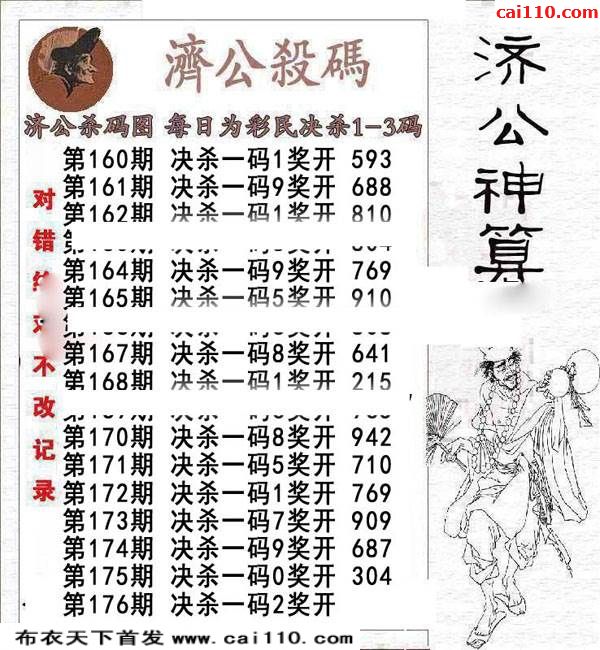 cai110.com
濟公殺碼
济公杀码图 每日为彩民决杀1-3码
第160期 决杀一码1奖开 593
第161期 决杀一码9奖开 688
第162期 决杀一码1奖开 810
第164期 决杀一码9奖开 769
第165期 决杀一码5奖开 910
第167期 决杀一码8奖开 641
第168期 决杀一码1奖开 215
第170期 决杀一码8奖开 942
第171期 决杀一码5奖开 710
第172期 决杀一码1奖开 769
第173期 决杀一码7奖开 909
第174期 决杀一码9奖开 687
第175期 决杀一码0奖开 304
第176期 决杀一码2奖开
对错 不改记录
济公神算
布衣天下首发 www.cai110.com